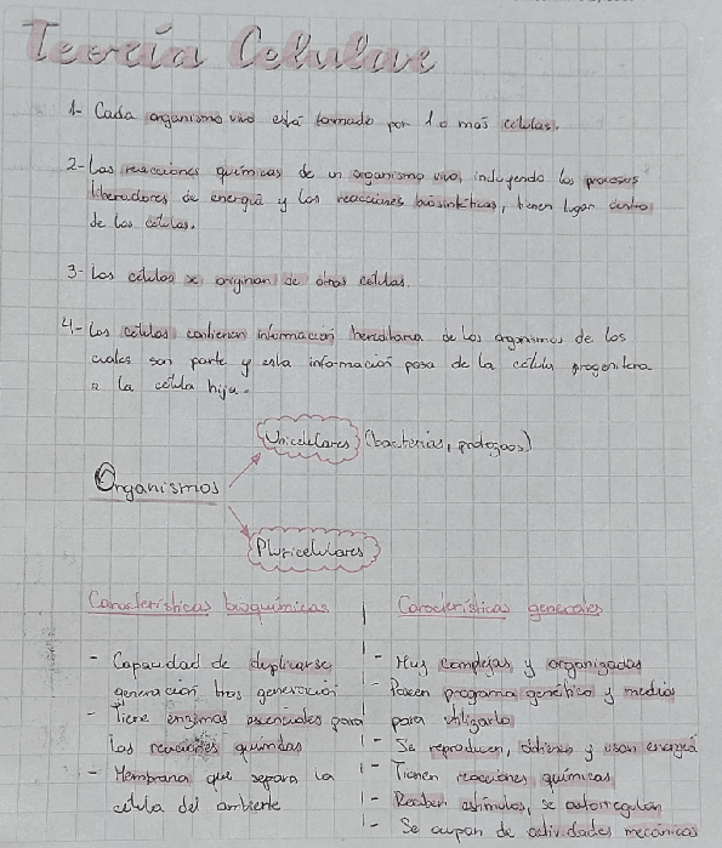 Teoría Celular
1- Cada organismo vivo está formado por 1 o más células.
2- Las reacciones químicas de un organismo vivo, incluyendo los procesos
liberadores de energía y las reacciones biosintéticas, tienen lugar dentro
de las células.
3- Las células se originan de otras células.
4- Las células contienen información hereditaria de los organismos de los
cuales son parte y esta información pasa de la célula progenitora
a la célula hija.
Unicelulares (bacterias, protozoos)
Organismos
Pluricelulares
Características bioquímicas
- Capacidad de duplicarse
generación tras generación
- Tiene enzimas esenciales para
las reacciones químicas
- Membrana que separa la
célula del ambiente
Características generales
- Muy complejas y organizadas
- Poseen programa genético y medios
para utilizarlo
- Se reproducen, obtienen y usan energía
- Tienen reacciones químicas
- Reciben estímulos, se autorregulan
- Se ocupan de actividades mecánicas